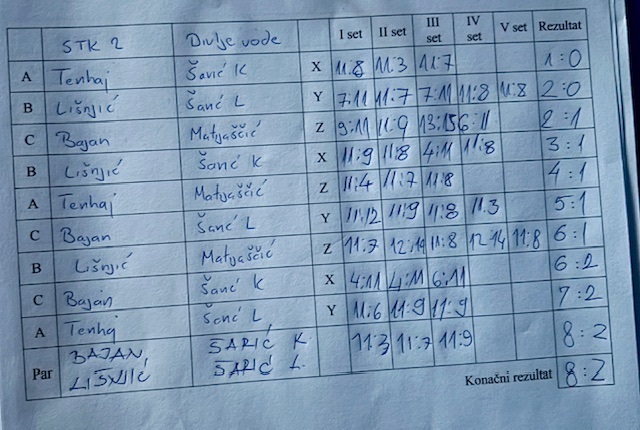 STK 2 Divlje vode I set II set III set IV set V set Rezultat
A Tenhaj Šarić K X 11:8 11:3 11:7 1:0
B Lišnjić Šarić L Y 7:11 11:7 7:11 11:8 11:8 2:0
C Bajan Matijaščić Z 9:11 11:9 13:15 6:11 2:1
B Lišnjić Šarić K X 11:9 11:8 4:11 11:8 3:1
A Tenhaj Matijaščić Z 11:4 11:7 11:8 4:1
C Bajan Šarić L Y 11:12 11:9 11:8 11:3 5:1
B Lišnjić Matijaščić Z 11:7 12:14 11:8 12:14 11:8 6:1
C Bajan Šarić K X 4:11 4:11 6:11 6:2
A Tenhaj Šarić L Y 11:6 11:9 11:9 7:2
Par BAJAN, LIŠNJIĆ ŠARIĆ K. ŠARIĆ L. 11:3 11:7 11:9 8:2
Konačni rezultat 8:2